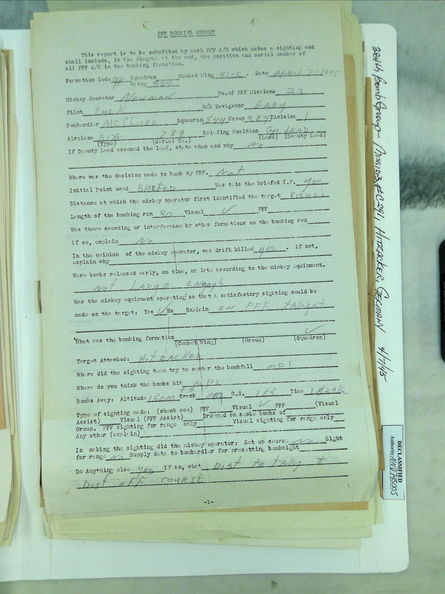 PFF BOMBING REPORT
This report is to be submitted by each PFF A/C which makes a sighting and
shall include, in the diagram at the end, the position and serial number of
all PFF A/C in the bombing formation.
Formation led: Squadron Combat Wing 41-C Date April 7-1945
Group 384
Mickey Operator Newman No. of PFF Missions 22
Pilot D/R Navigator
Bombardier McClure Squadron 544 Group 384 Division 1
Airplane B17G 789 Briefing Position Gp Lead
(Type) (Serial No.) (Lead) (Deputy Lead)
If Deputy Lead assumed the lead, state when and why No
Where was the decision made to bomb by PFF. Not
Initial Point used Briefed Was this the briefed I.P. yes
Distance at which the mickey operator first identified the target Visual
Length of the bombing run 20 Visual ✓ PFF
Was there crowding or interference by other formations on the bombing run
If so, explain No
In the opinion of the mickey operator, was drift killed yes. If not,
explain why
Were bombs released early, on time, or late according to the mickey equipment.
Not large enough
Was the mickey equipment operating so that a satisfactory sighting could be
made on the target: Yes ✓ No Explain on PFF target
What was the bombing formation ✓
(Combat Wing) (Group) (Squadron)
Target Attacked: Hitzacker
Where did the sighting team try to center the bombfall MPI
Where do you think the bombs hit MPI
Bombs Away: Altitude 15000 Track D.S. Time
Type of sighting made: (check one) PFF Visual ✓ PFF (Visual
Assist) Visual (PFF Assist) Dropped on smoke bombs of
Group. PFF sighting for range only Visual sighting for range only
Any other (explain)
In making the sighting did the mickey operator: Set up course No Sight
for range No Supply data to bombardier for presetting bombsight
Do Anything else yes If so, what Dist to targ +
Dist off course
-1-
384th Bomb Group - Mission #291, Hitzacker, Germany 4/7/45
DECLASSIFIED